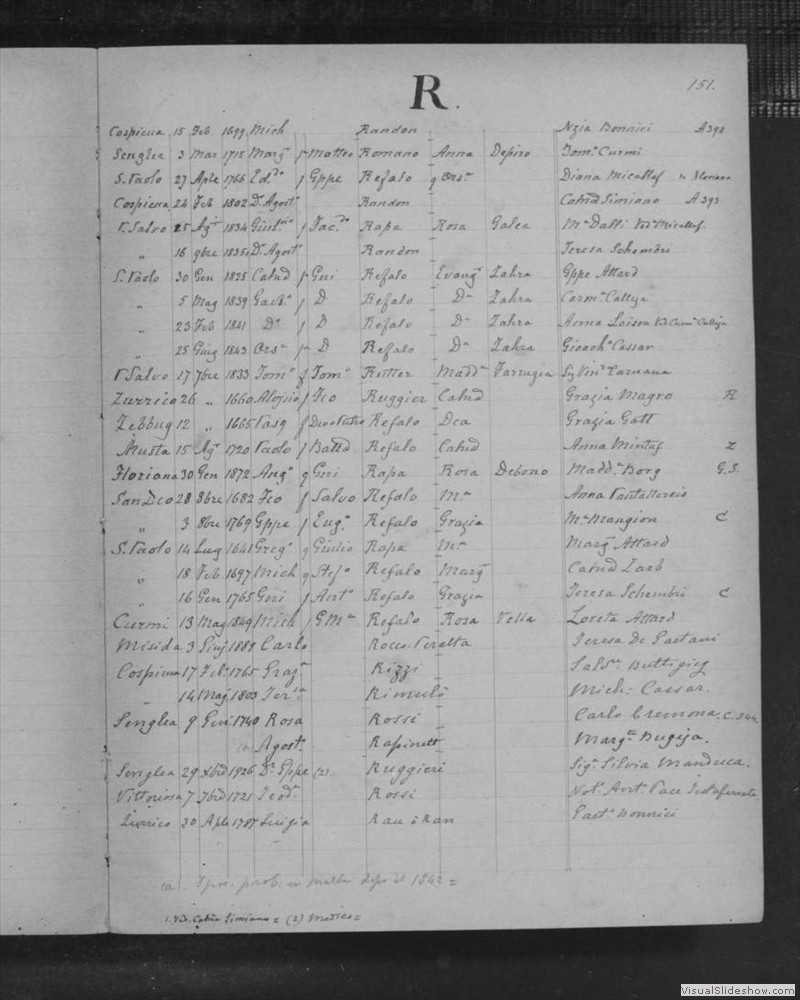 R.
151.
Cospicua 15 Feb 1699 Mich Randon Nzia Bonnici A 398
Senglea 3 Mar 1715 Marg. f Matteo Romano Anna Depiro Tom. Curmi
S. Paolo 27 Aple 1766 f Gppe Refalo q Ors. Diana Micallef
Cospicua 24 Feb 1802 Dr. Agost. Randon Catnd Simiano A 393
V. Salvo 25 Ag. 1834 f Rapa Rosa Galea M. Dalli Vda Micallef
" 16 9bre 1835 Dr. Agost. Randon Teresa Schembri
S. Paolo 30 Gen 1825 Catnd f Gni Refalo Evang. Zahra Gppe Attard
" 5 Mag 1839 f D Refalo Da Zahra Carm. Calleja
" 23 Feb 1841 Da f D Refalo Da Zahra Anna Loison Vd Carm. Calleja
" 25 Giug 1843 Ors. f D Refalo Da Zahra Cassar
V. Salvo 17 7bre 1833 Tom. f Tom. Rutter Madd. Farrugia Vin. Zarnana
Zurrico 26 " 1660 Aloysio f Fco Ruggier Catnd Grazia Magro R
Zebbug 12 " 1665 Pasq f Refalo Dea Grazia Gatt
Musta 15 Ag. 1720 Paolo f Battd Refalo Catnd Anna Mintuf Z
Floriana 30 Gen 1872 Ang. q Gni Rapa Rosa Debono Madd. Borg G.S.
San Dco 28 8bre 1682 Fco f Salvo Refalo M. Anna
" 3 8bre 1769 Gppe f Eug. Refalo Grazia M. Mangion C
S. Paolo 14 Lug 1641 Greg. q Giulio Rapa M. Marg. Attard
" 18 Feb 1697 Mich q Stef. Refalo Marg Catnd Zarb
" 16 Gen 1765 Gni f Ant. Refalo Grazia Teresa Schembri C
Curmi 13 Mag 1849 Mich f G.Ma Refalo Rosa Vella Loreta Attard
Misida 3 Giug Carlo Rocco Peralta Teresa De Gaetani
Cospicua 17 Feb. 1765 Graz. Rizzi Sals. Buttigieg
" 14 Mag. 1803 Ter. Rimulò Mich: Cassar.
Senglea 9 Gen. 1740 Rosa Rossi Carlo Cremona. C. 344
(a) Agost. Rapinett Marg. Bugeja.
Senglea 29 Xbre 1926 Dr. Gppe (2) Ruggieri Sig. Silvia Manduca.
Vittoriosa 7 7bre 1721 Teod. Rossi Not. Ant. Pace
Zurrico 30 Aple 1787 Luigia Rau ò Ran Gaet. Bonnici
(a) prob: in Malta dopo il 1842 =
1. Vd. Catna Simiano = (2) Medico =
VisualSlideshow.com